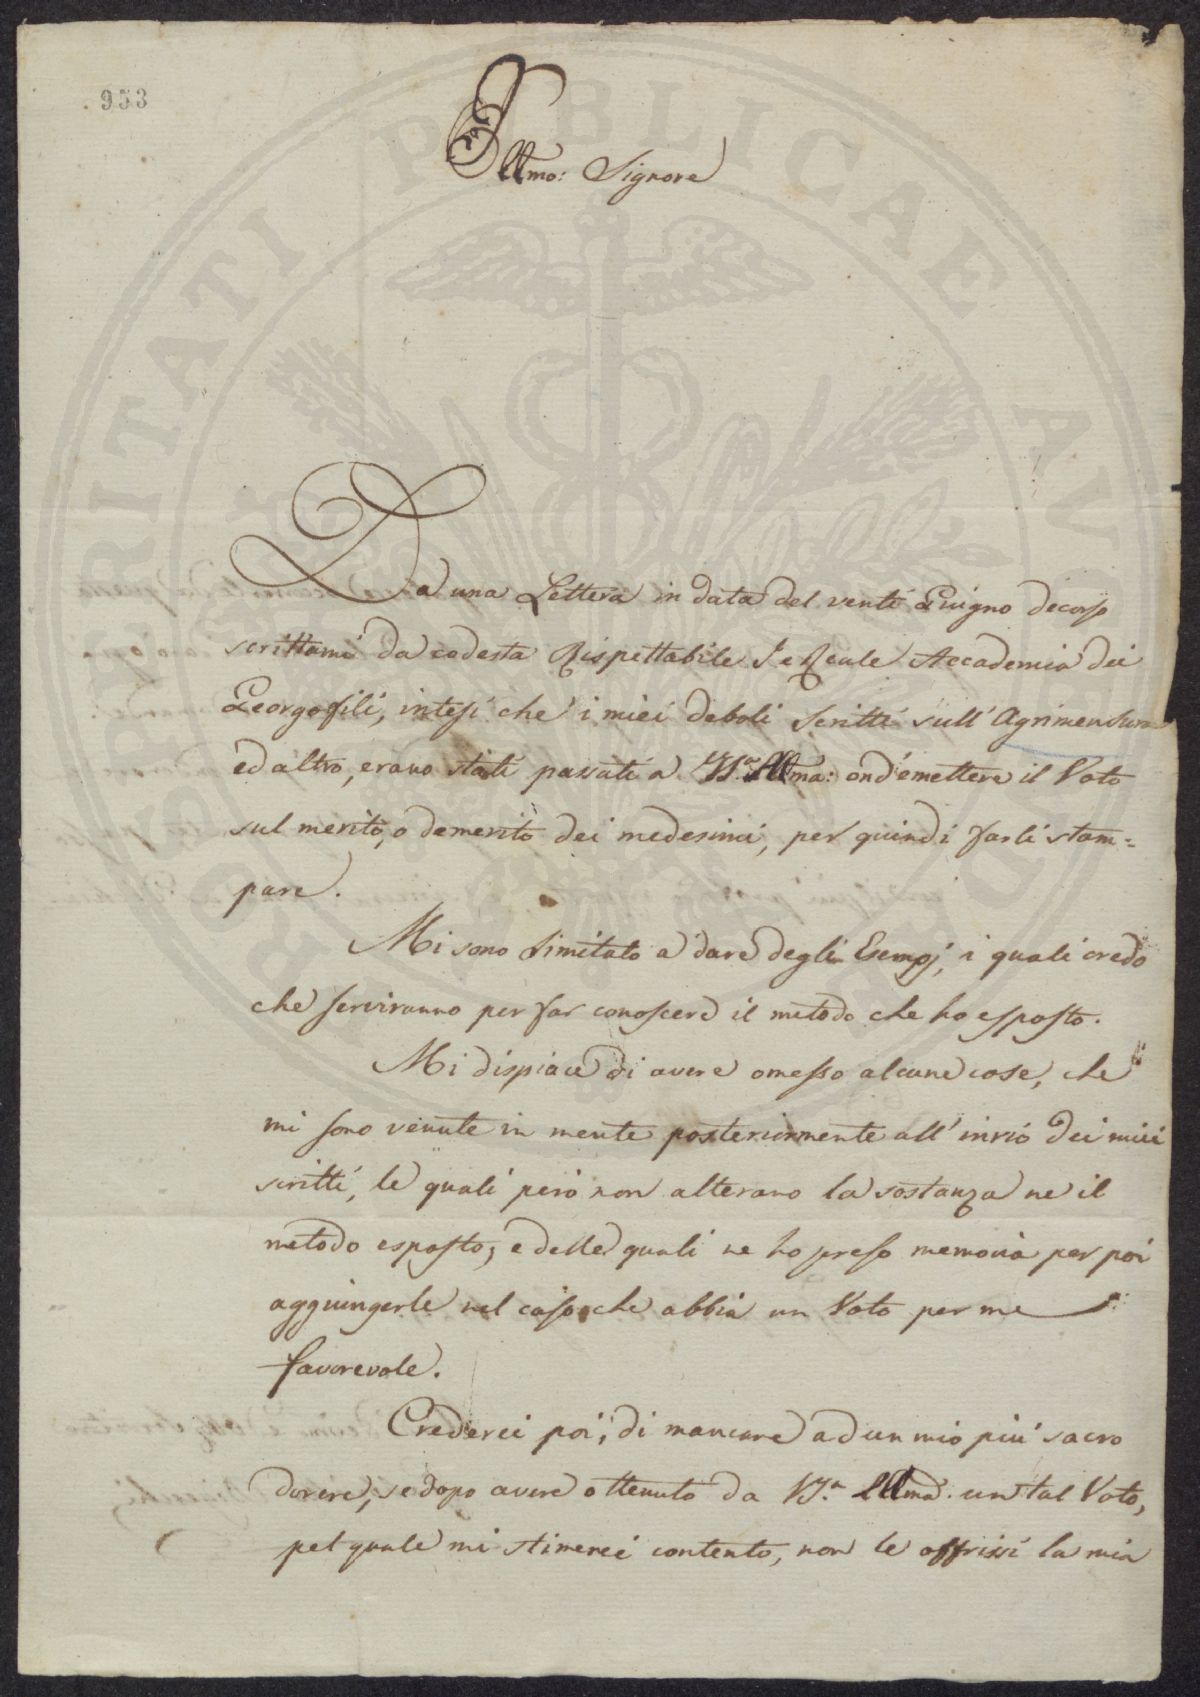 953
Illmo: Signore
Da una Lettera in data del venti Giugno decorso
scrittami da codesta Rispettabile I e Reale Accademia dei
Georgofili, intesi che i miei deboli scritti sull' Agrimensura
ed altro, erano stati passati a VS.ra Illma: ond'emettere il Voto
sul merito, o demerito dei medesimi, per quindi farli stam=
pare.
Mi sono limitato a dare degli Esempj, i quali credo
che serviranno per far conoscere il metodo che ho esposto.
Mi dispiace di avere omesso alcune cose, che
mi sono venute in mente posteriormente all' invio dei miei
scritti, le quali però non alterano la sostanza ne il
metodo esposto; e delle quali ne ho preso memoria per poi
aggiungerle nel caso che abbia un Voto per me
favorevole.
Crederei poi, di mancare ad un mio più sacro
dovere, se dopo avere ottenuto da VS.a Illma. un tal Voto,
pel quale mi stimerei contento, non le offrissi la mia
PROSPERITATI PUBLICAE AU